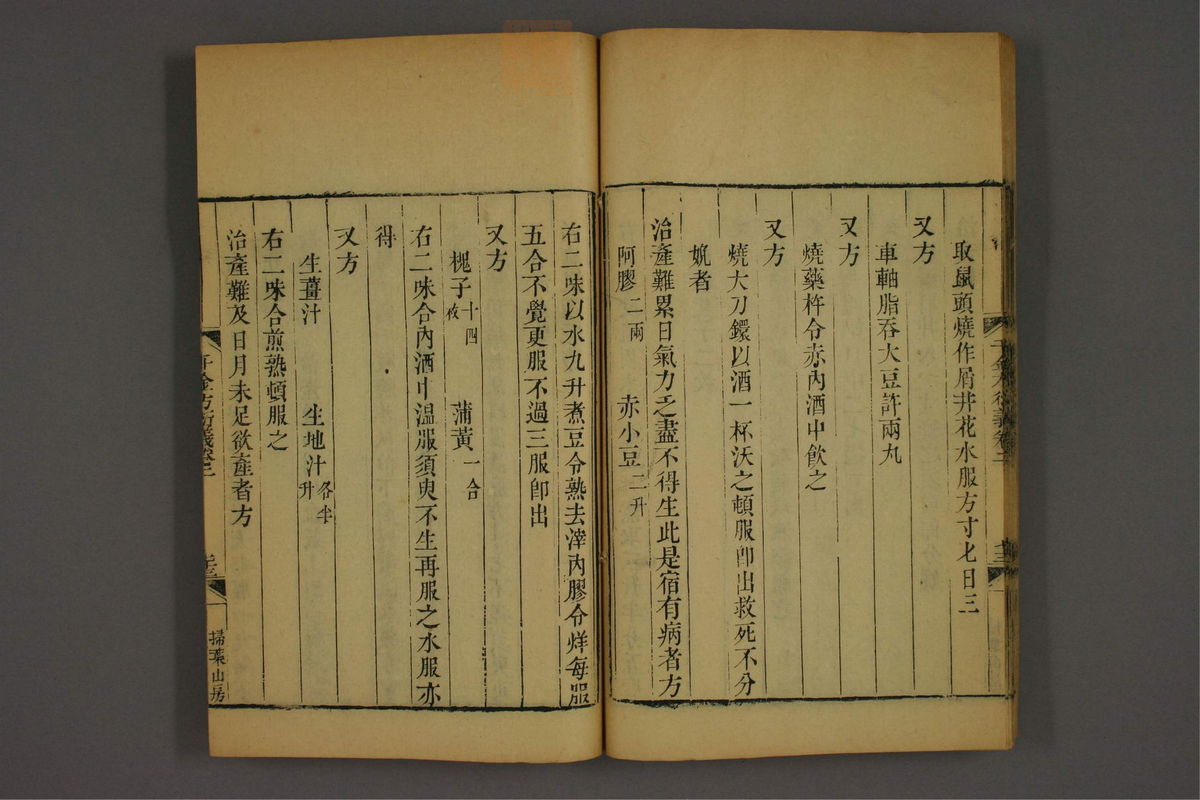 取鼠頭燒作屑井花水服方寸匕日三
又方
車軸脂吞大豆許兩丸
又方
燒藥杵令赤內酒中飲之
又方
燒大刀鐶以酒一杯沃之頓服卽出救死不分
娩者
治產難累日氣力乏盡不得生此是宿有病者方
阿膠二兩 赤小豆二升
右二味以水九升煮豆令熟去滓內膠令烊每服
五合不覺更服不過三服卽出
又方
槐子十四枚 蒲黃一合
右二味合內酒中溫服須臾不生再服之水服亦
得
又方
生薑汁 生地汁各半升
右二味合煎熟頓服之
治產難及日月未足欲產者方
千金方衍義卷三
掃葉山房